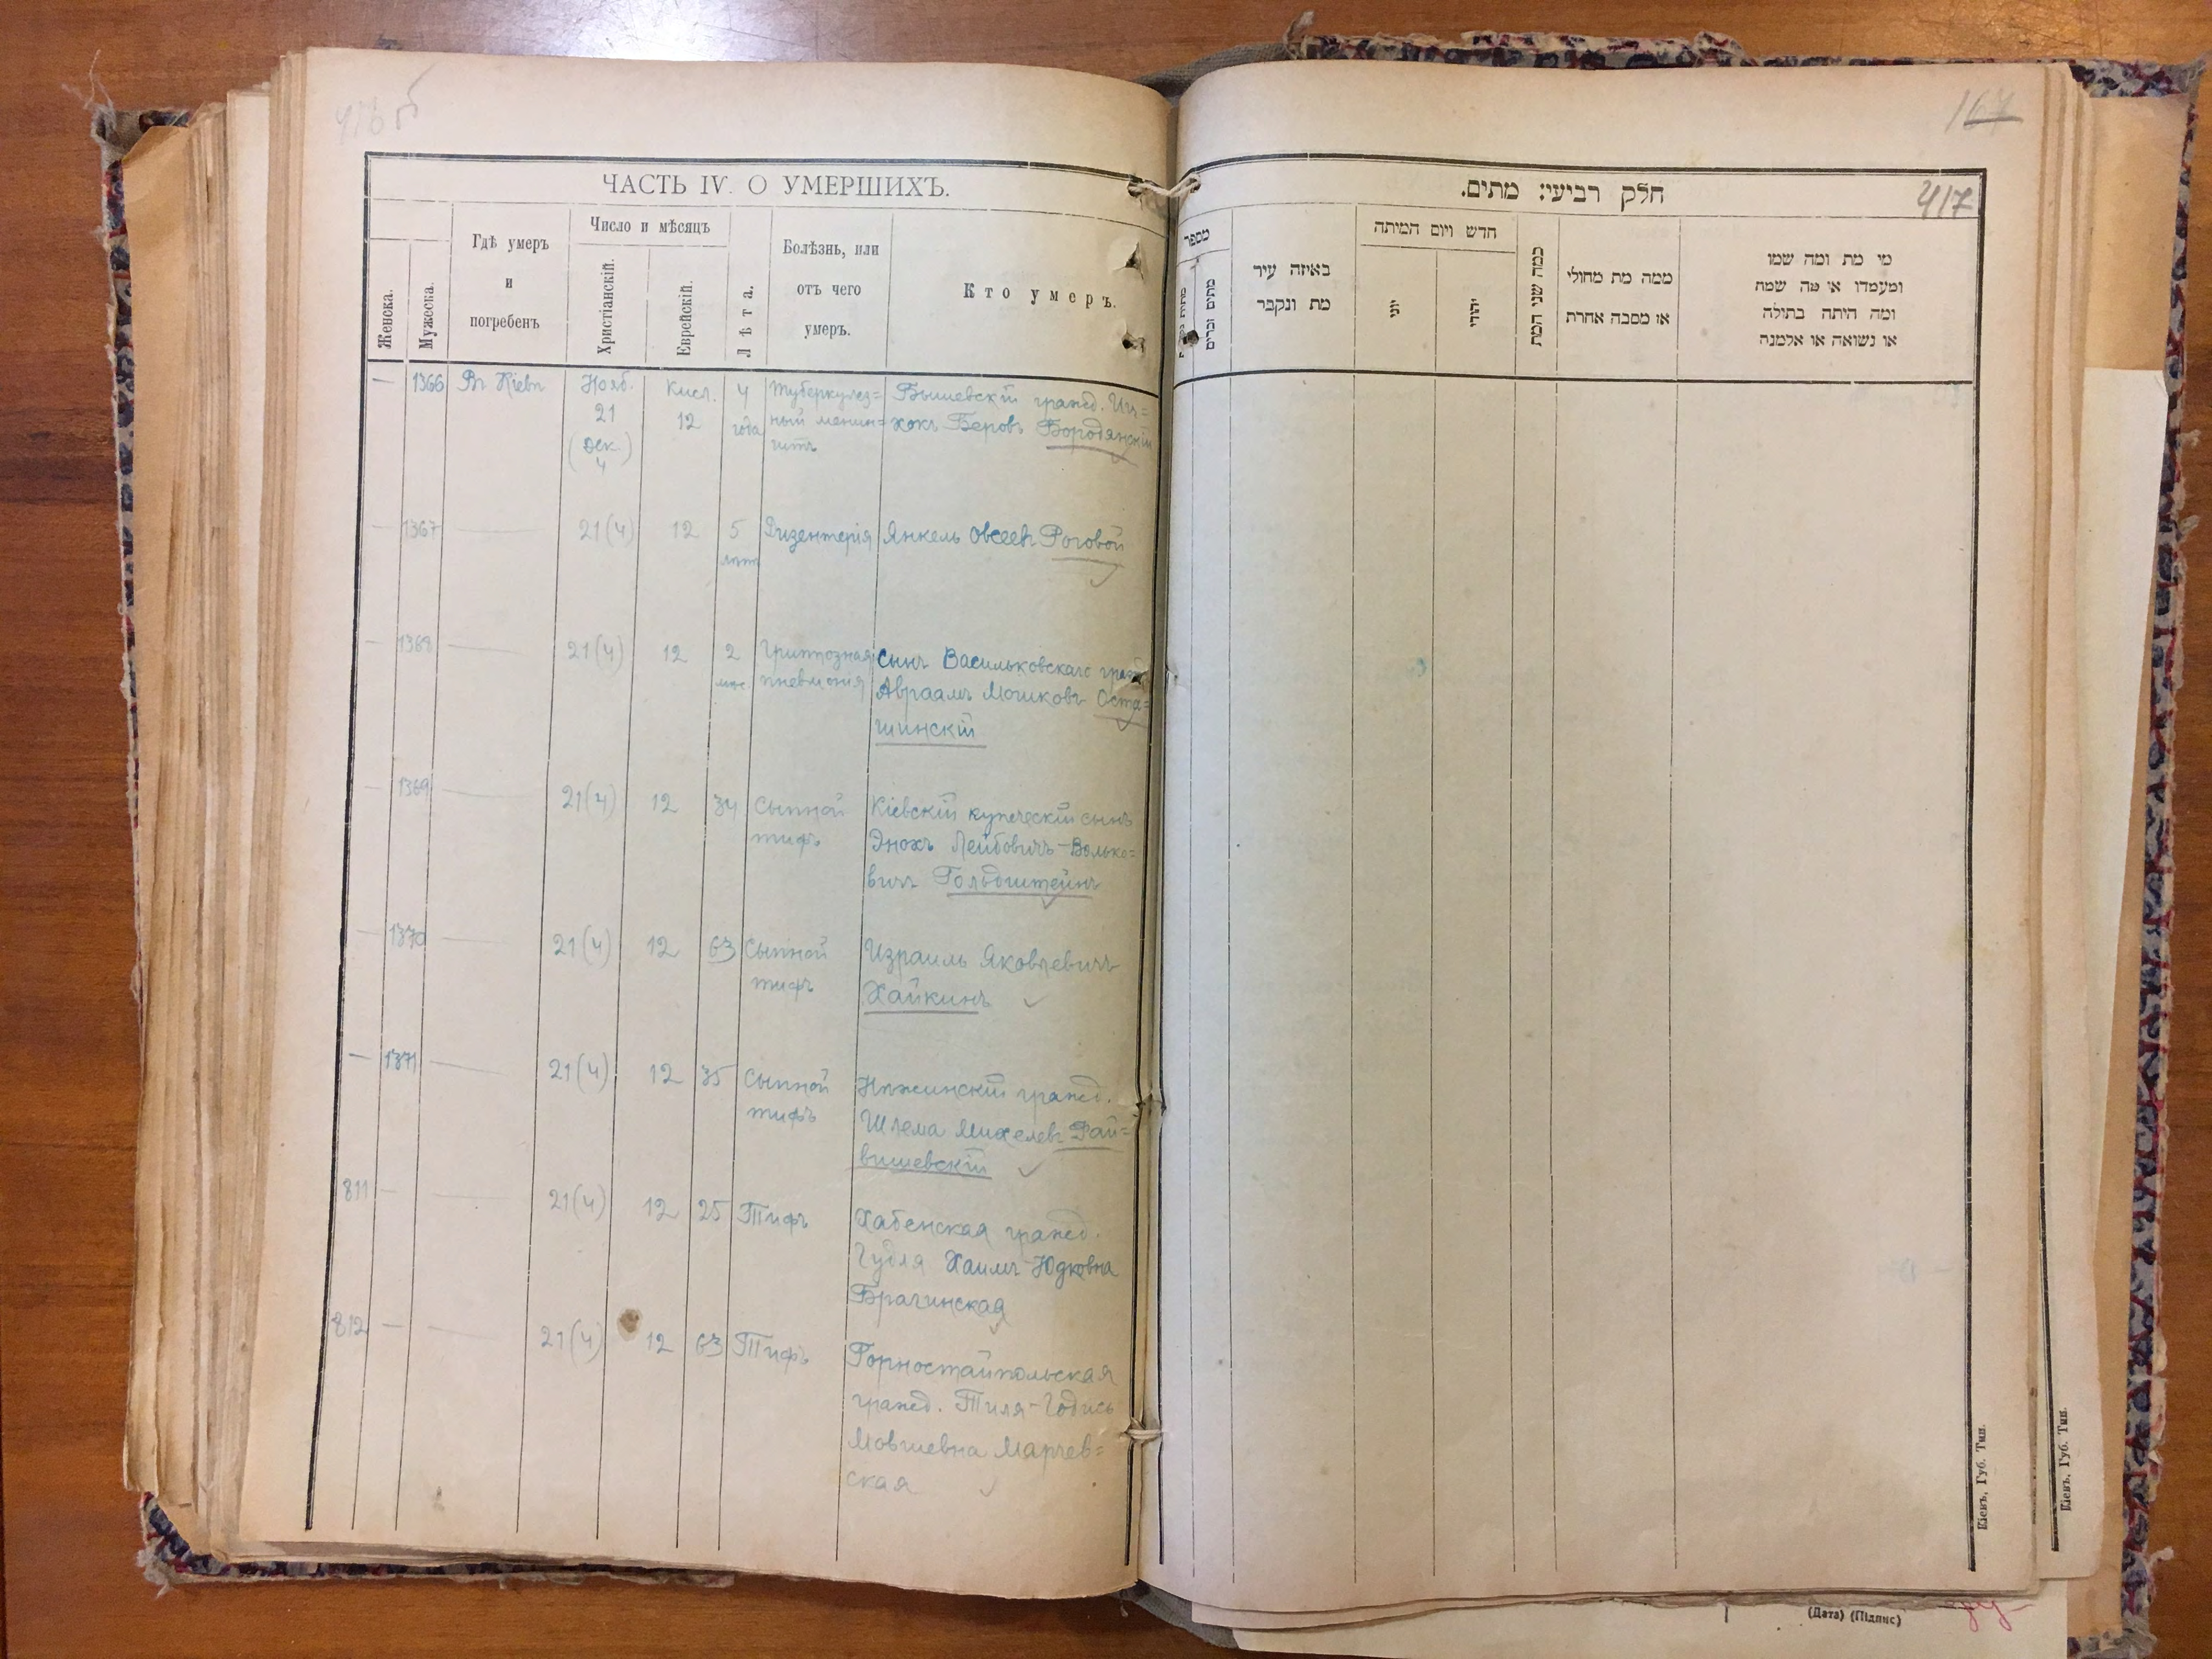 416 б
ЧАСТЬ IV. О УМЕРШИХЪ.
Женска.
Мужеска.
Гдѣ умеръ
и
погребенъ
Число и мѣсяцъ
Христіанскій.
Еврейскій.
Лѣта.
Болѣзнь, или
отъ чего
умеръ.
Кто умеръ.
— 1366 Въ Кіевѣ Нояб. 21 (Дек. 4) Кисл. 12 4 года Туберкулез=
ный менин=
гитъ
Бышевскій гражд. Иц=
хокъ Беровъ Бородянскій
— 1367 — 21(4) 12 5 лѣтъ Дизентерія Янкель Овсеевъ Роговой
— 1368 — 21(4) 12 2 мѣс. Гриппозная
пневмонія
Сынъ Васильковскаго гражд.
Авраамъ Мошковъ Оста=
шинскій
— 1369 — 21(4) 12 34 Сыпной
тифъ
Кіевскій купеческій сынъ
Энохъ Лейбовичъ-Волько=
вичъ Гольдштейнъ
— 1370 — 21(4) 12 63 Сыпной
тифъ
Израиль Яковлевичъ
Хайкинъ
— 1371 — 21(4) 12 35 Сыпной
тифъ
Нѣжинскій гражд.
Шлема Михелевъ Рай=
вишевскій
811 — — 21(4) 12 25 Тифъ Хабенская гражд.
Гудля Хаимъ-Юдковна
Брагинская
812 — — 21(4) 12 63 Тифъ Горностайпольская
гражд. Тиля-Годись
Мовшевна Марчев=
ская
167
417
חלק רביעי: מתים.
מספר
מתים זכרים
באיזה עיר
מת ונקבר
חדש ויום המיתה
יוני
יהודי
כמה שני המת
ממה מת מחולי
או מסבה אחרת
מי מת ומה שמו
ומעמדו או מה שמה
ומה היתה בתולה
או נשואה או אלמנה
Кіевъ, Губ. Тип.
Кіевъ, Губ. Тип.
(Дата) (Підпис)